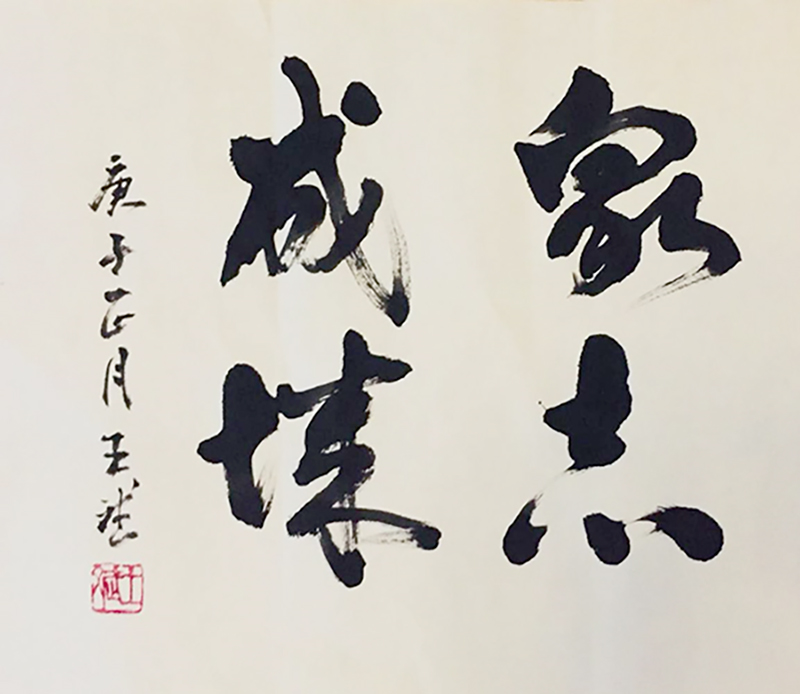 衆志
成城
庚子正月王斌